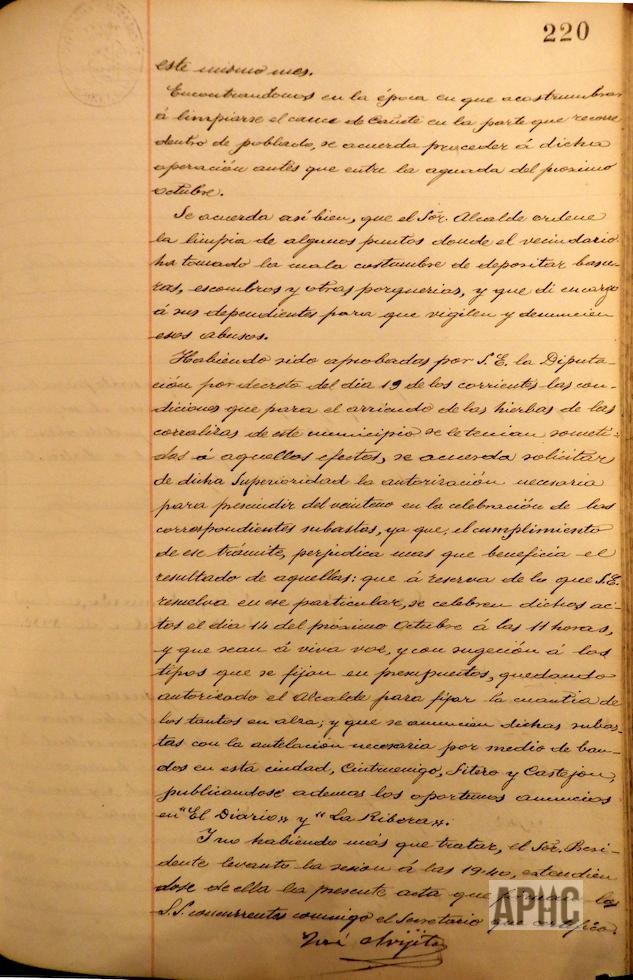 220
este mismo mes.
Encontrandonos en la época en que acostumbran
á limpiarse el cauce de Cañete en la parte que recorre
dentro de poblado, se acuerda proceder á dicha
operación antes que entre la aguada del proximo
octubre.
Se acuerda asi bien, que el Sor. Alcalde ordene
la limpia de algunos puntos donde el vecindario
ha tomado la mala costumbre de depositar basu-
ras, escombros y otras porquerias, y que dé encargo
á sus dependientes para que vigilen y denuncien
esos abusos.
Habiendo sido aprobados por S.E. la Diputa-
ción por decreto del dia 19 de los corrientes las con-
diciones que para el arriendo de las hierbas de las
corralizas de este municipio se le tenian someti-
das á aquellos efectos, se acuerda solicitar
de dicha Superioridad la autorización necesaria
para prescindir del veinteno en la celebración de las
correspondientes subastas, ya que, el cumplimiento
de ese trámite, perjudica mas que beneficia el
resultado de aquellas: que á reserva de lo que S.E.
resuelva en ese particular, se celebren dichos ac-
tos el dia 14 del próximo Octubre á las 11 horas,
y que sean á viva voz, y con sugeción á los
tipos que se fijan en presupuestos, quedando
autorizado el Alcalde para fijar la cuantia de
los tantos en alza; y que se anuncien dichas subas-
tas con la antelación necesaria por medio de ban-
dos en esta ciudad, Cintruenigo, Fitero y Castejon,
publicandose ademas los oportunos anuncios
en "El Diario" y "La Ribera".
Y no habiendo más que tratar, el Sor. Presi-
dente levantó la sesión á las 19'40, extendien
dose de ella la presente acta que firman los
S.S. concurrentes conmigo el Secretario que certifico.
APHC
José